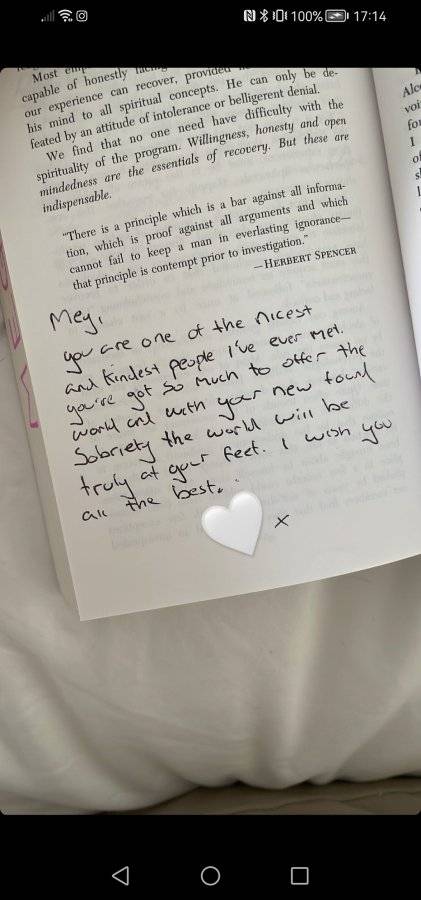 100% 17:14
Most
capable of honestly
our experience can recover, provided
his mind to all spiritual concepts. He can only be de-
feated by an attitude of intolerance or belligerent denial.
We find that no one need have difficulty with the
spirituality of the program. Willingness, honesty and open
mindedness are the essentials of recovery. But these are
indispensable.
"There is a principle which is a bar against all informa-
tion, which is proof against all arguments and which
cannot fail to keep a man in everlasting ignorance—
that principle is contempt prior to investigation."
—HERBERT SPENCER
Mey,
you are one of the nicest
and kindest people I've ever met.
you're got so much to offer the
world and with your new found
Sobriety the world will be
truly at your feet. I wish you
all the best.
x